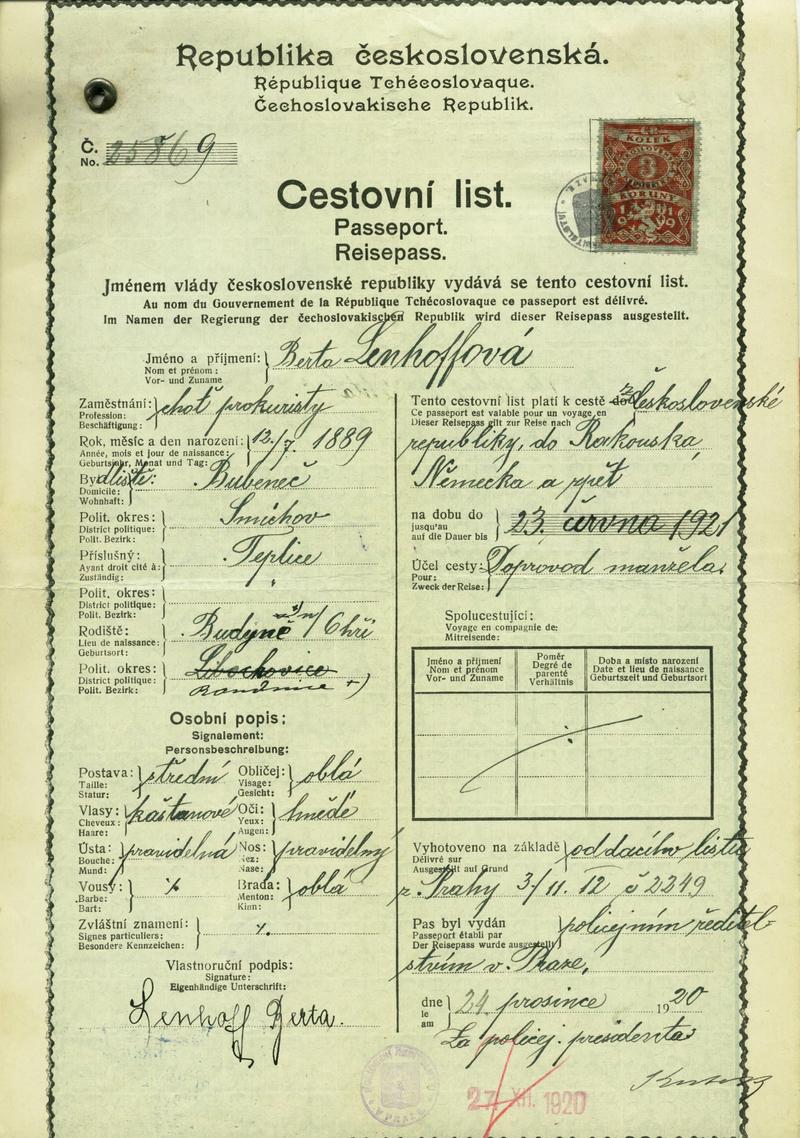 Republika československá.
République Tchécoslovaque.
Čechoslovakische Republik.
Č.
No. 25869
KOLEK
3
KORUNY
1919
Cestovní list.
Passeport.
Reisepass.
Jménem vlády československé republiky vydává se tento cestovní list.
Au nom du Gouvernement de la République Tchécoslovaque ce passeport est délivré.
Im Namen der Regierung der čechoslovakischen Republik wird dieser Reisepass ausgestellt.
Jméno a příjmení: Berta Lenhoffová
Nom et prénom:
Vor- und Zuname
Zaměstnání: choť prokuristy
Profession:
Beschäftigung:
Rok, měsíc a den narození: 12/7. 1889
Année, mois et jour de naissance:
Geburtsjahr, Monat und Tag:
Bydliště: Bubeneč
Domicile:
Wohnhaft:
Polit. okres: Smíchov
District politique:
Polit. Bezirk:
Příslušný: Teplice
Ayant droit cité à:
Zuständig:
Polit. okres:
District politique:
Polit. Bezirk:
Rodiště: Budyně n/Ohří
Lieu de naissance:
Geburtsort:
Polit. okres: Libochovice
District politique: Roudnice +)
Polit. Bezirk:
Osobní popis:
Signalement:
Personsbeschreibung:
Postava: střední Obličej: oblá
Taille: Visage:
Statur: Gesicht:
Vlasy: kaštanové Oči: hnědé
Cheveux: Yeux:
Haare: Augen:
Ústa: pravidelná Nos: pravidelný
Bouche: Nez:
Mund: Nase:
Vousy: Brada: oblá
Barbe: Menton:
Bart: Kinn:
Zvláštní znamení:
Signes particuliers:
Besondere Kennzeichen:
Vlastnoruční podpis:
Signature:
Eigenhändige Unterschrift:
Lenhoff Berta.
Tento cestovní list platí k cestě do z Československé
Ce passeport est valable pour un voyage en
Dieser Reisepass gilt zur Reise nach
republiky, do Rakouska,
Německa a zpět
na dobu do 23. června 1921
jusqu'au
auf die Dauer bis
Účel cesty: Doprovod manžela.
Pour:
Zweck der Reise:
Spolucestující:
Voyage en compagnie de:
Mitreisende:
Jméno a příjmení Poměr Doba a místo narození
Nom et prénom Degré de parenté Date et lieu de naissance
Vor- und Zuname Verhältnis Geburtszeit und Geburtsort
Vyhotoveno na základě oddacího listu
Délivré sur
Ausgestellt auf Grund
z Prahy 3/11. 12 č 2249
Pas byl vydán policejním ředitel-
Passeport établi par
Der Reisepass wurde ausgestellt
stvím v Praze,
dne 24. prosince 1920
le
am
Za policej. presidenta
27. XII. 1920